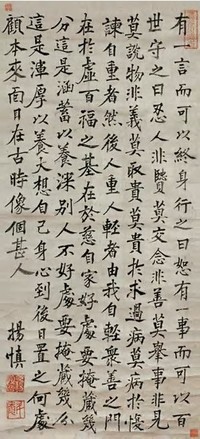 有一言而可以終身行之曰恕有一事而可以百
世守之曰忍人非賢莫交念非善莫舉事非見
莫說物非義莫取貴莫貴於求過病莫病於悛
諫自重者然後人重人輕者由我自輕衆善之門
在於虛百福之基在於慈自家好處要掩藏幾
分這是涵蓄以養深別人不好處要掩藏幾分
這是渾厚以養大想自己身心到後日置之何處
顧本來面目在古時像個甚人
楊慎